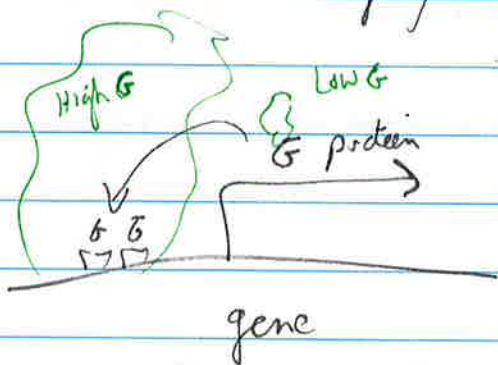 High G
Low G
G protein
G G
gene